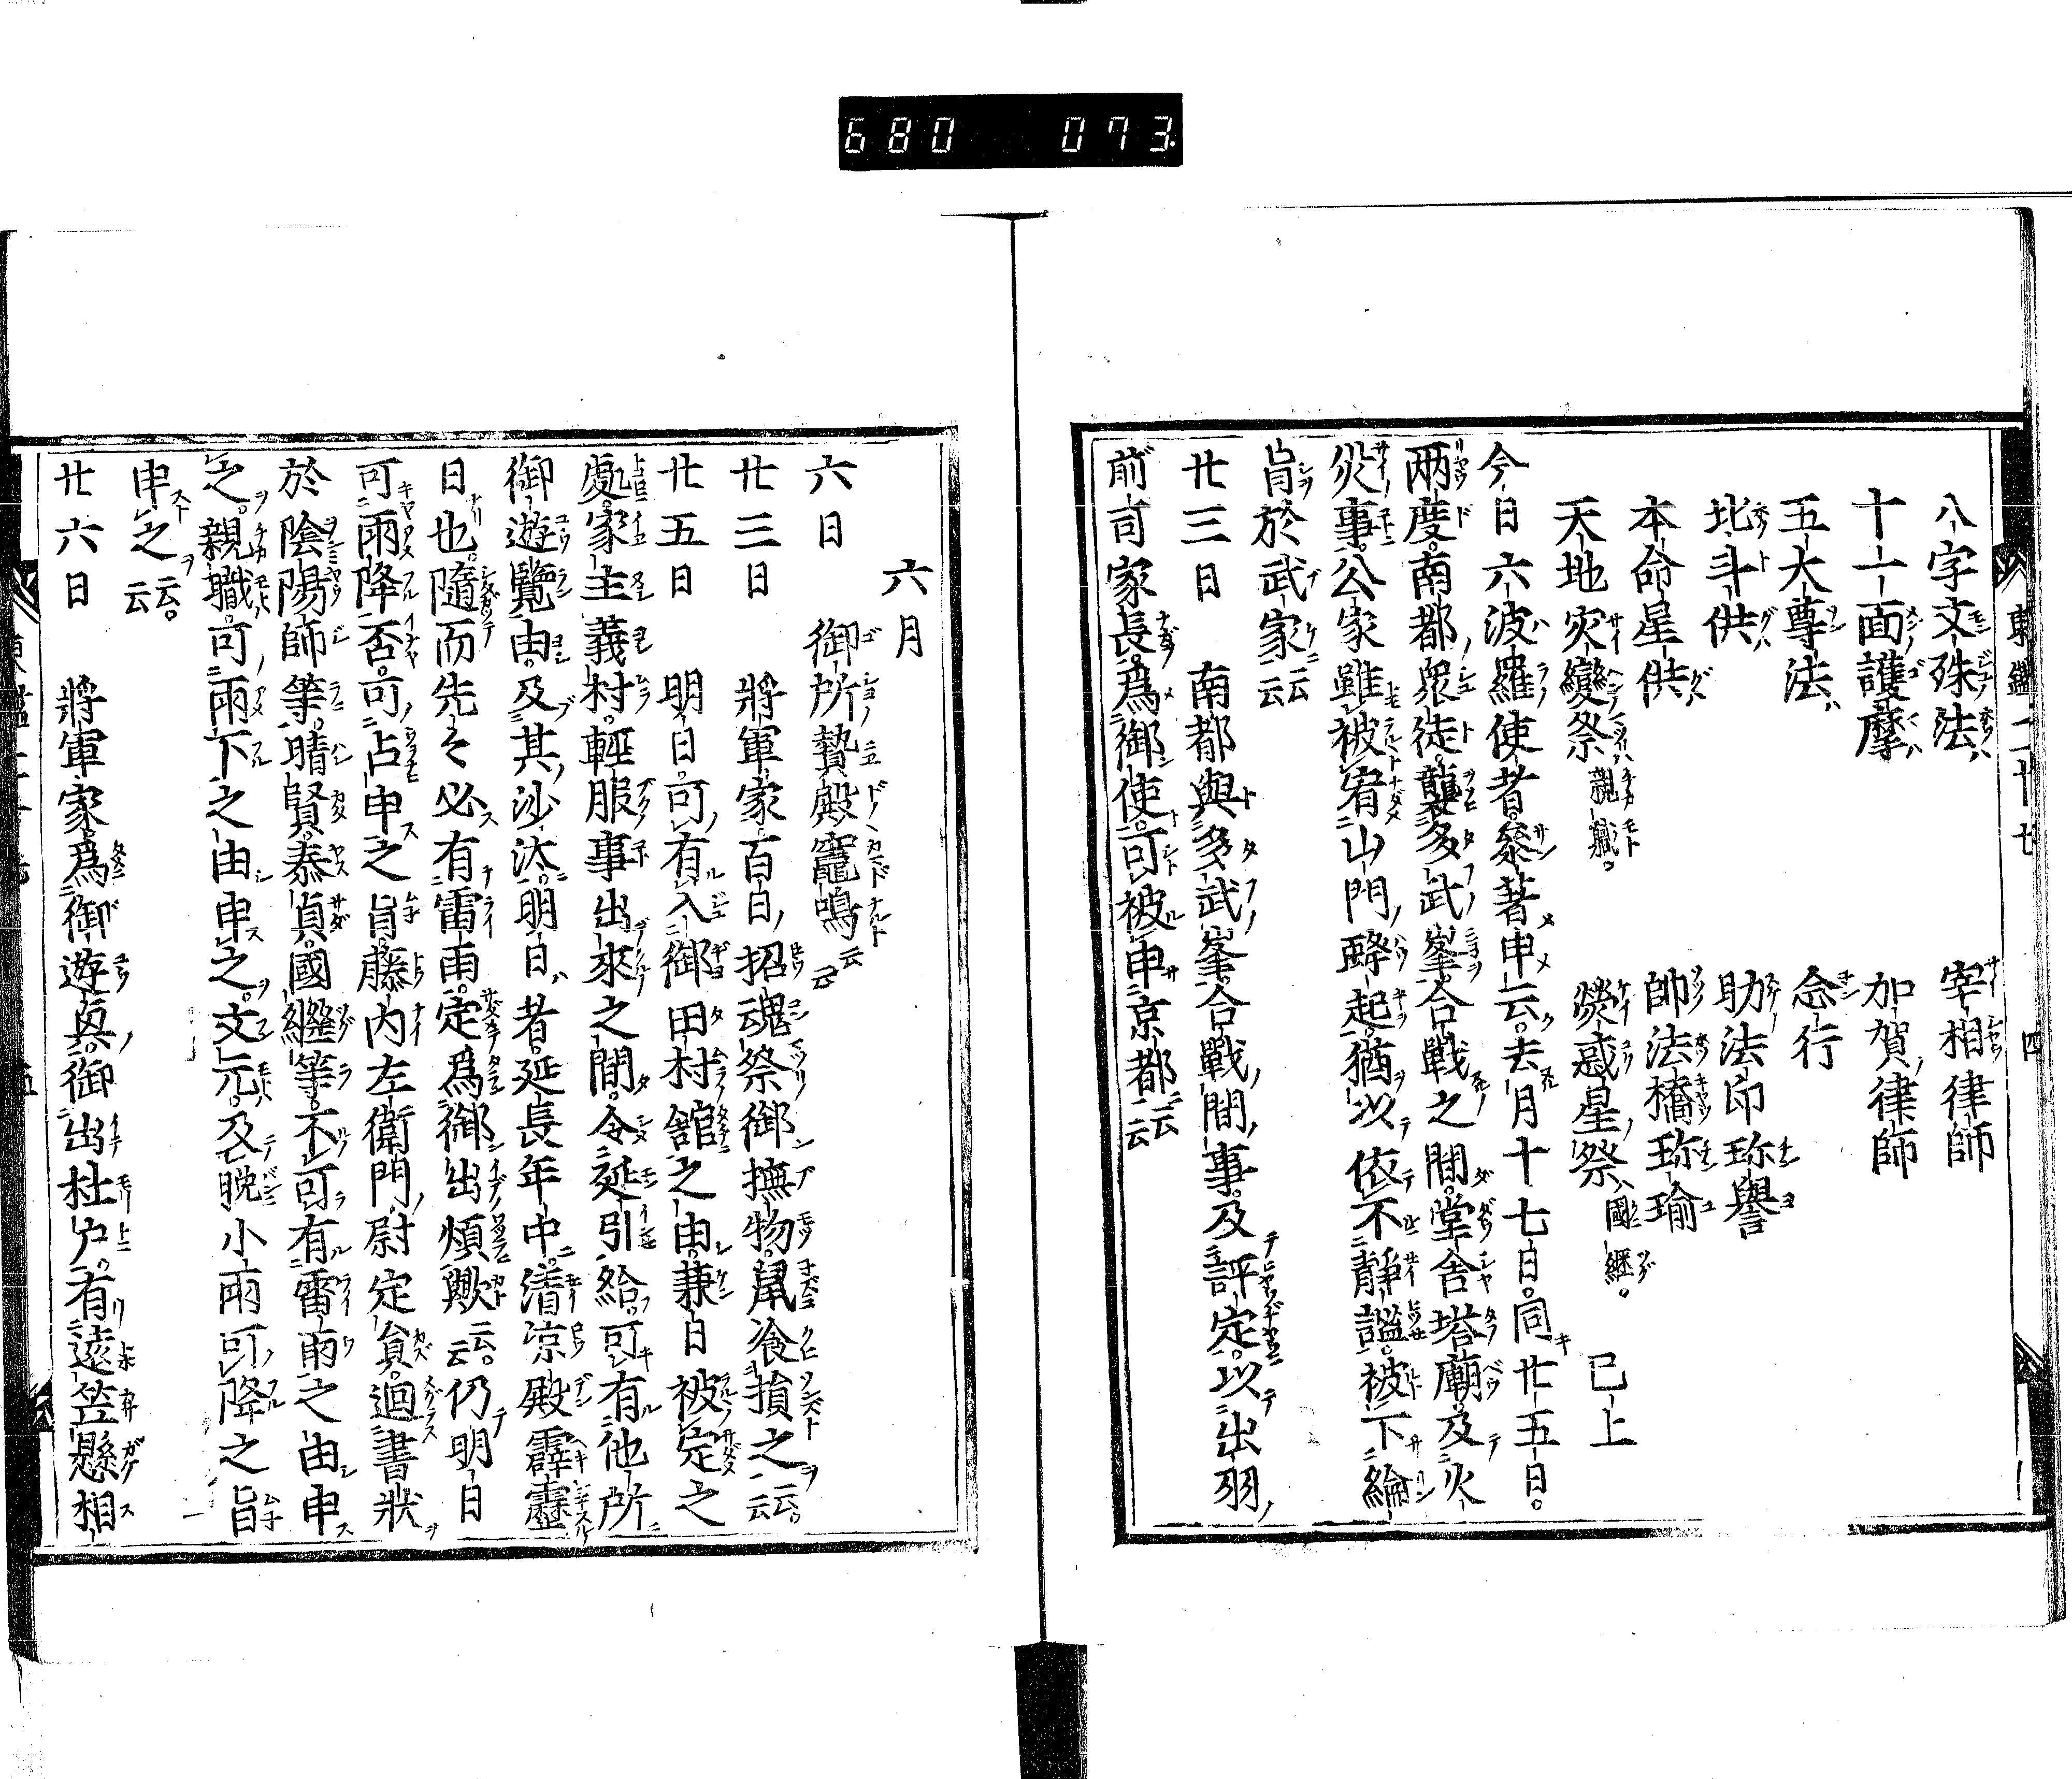 680 073
東鑑二十七 四
八字文殊法 宰相律師
十一面護摩 加賀律師
五大尊法 念行
北斗供 助法印珎譽
本命星供 帥法橋珎瑜
天地灾變祭親職。 熒惑星祭國継。 已上
今日六波羅使者。參著申云。去月十七日。同廿五日。
兩度。南都衆徒。襲多武峯。合戰之間。堂舍塔廟。及火
災事。公家雖被宥山門蜂起。猶以依不靜謐。被下綸
旨於武家云云
廿三日 南都與多武峯。合戰間事。及評定。以出羽
前司家長。爲御使。可被申京都云云
六月
六日 御所贄殿竈鳴云云
廿三日 將軍家百日招魂祭御撫物。鼠飡損之云云。
廿五日 明日。可有入御田村舘之由。兼日被定之
處。家主義村。輕服事出來之間。令延引給。可有他所
御遊覽由。及其沙汰。明日者。延長年中。淸凉殿霹靂
日也。隨而先々必有雷雨。定爲御出煩歟云云。仍明日
可雨降否。可占申之旨。藤内左衛門尉定員。迴書狀
於陰陽師等。晴賢。泰貞。國繼等。不可有雷雨之由申
之。親職。可雨下之由申之。文元。及晩小雨可降之旨
申之云云。
廿六日 將軍家爲御遊興。御出杜戸。有遠笠懸相